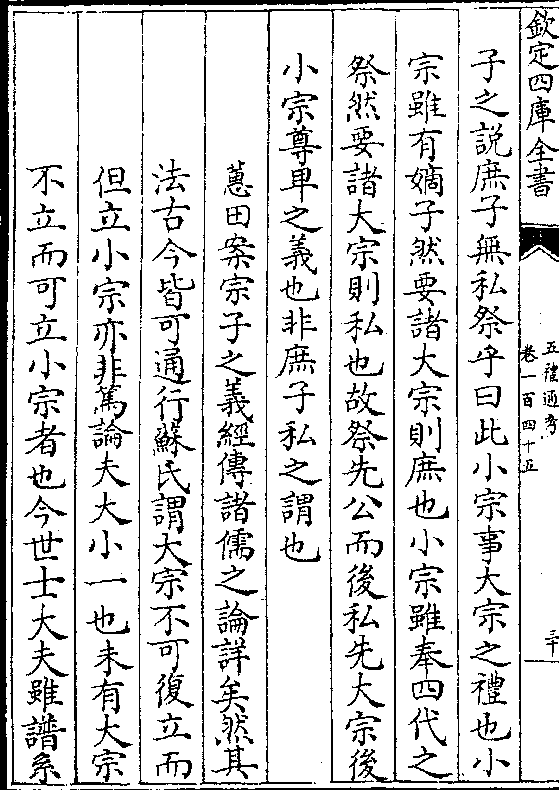 欽定四庫全書
五禮通考
卷一百四十五
三十
子之說庶子無私祭乎曰此小宗事大宗之禮也小
宗雖有嫡子然要諸大宗則庶也小宗雖奉四代之
祭然要諸大宗則私也故祭先公而後私先大宗後
小宗尊卑之義也非庶子私之謂也
蕙田案宗子之義經傳諸儒之論詳矣然其
法古今皆可通行蘇氏謂大宗不可復立而
但立小宗亦非篤論夫大小一也未有大宗
不立而可立小宗者也今世士大夫雖譜系